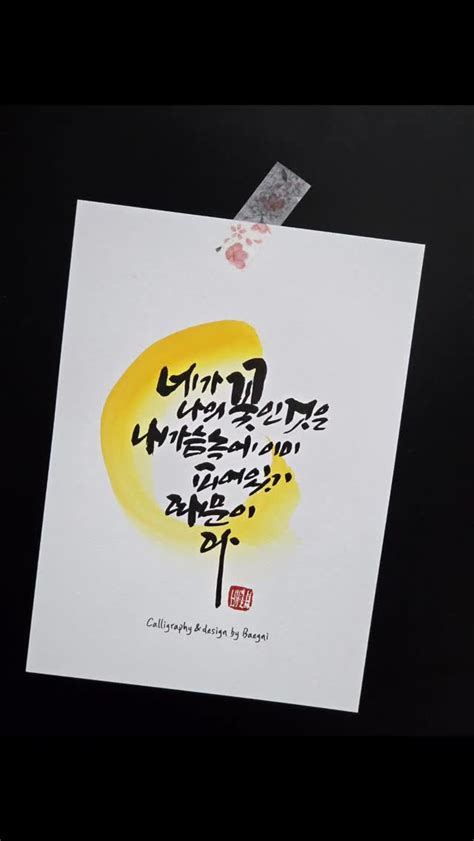 네가
나의 꽃인 것은
내 가슴 속에 이미
피어있기
때문이
Calligraphy & design by Baegni